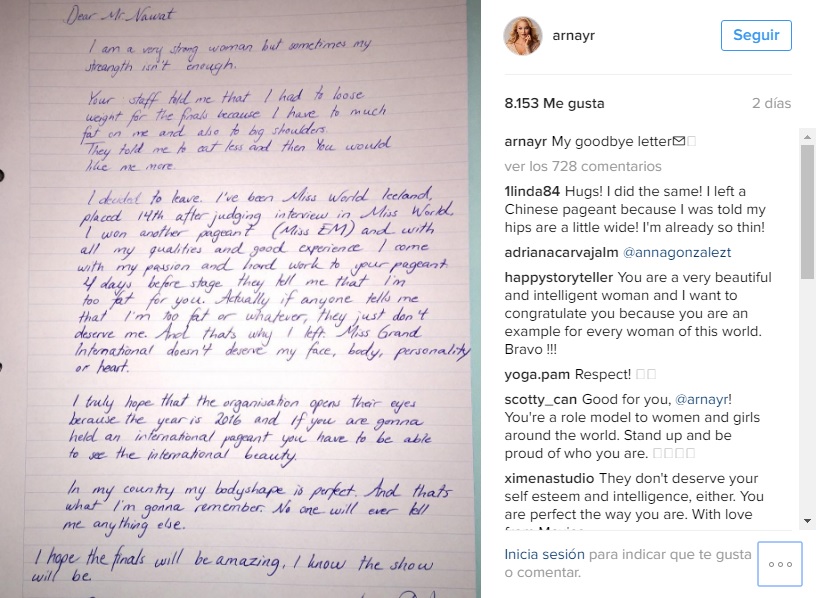 Dear Mr. Nawat
I am a very strong woman but sometimes my
streangth isn't enough.
Your staff told me that I had to loose
weight for the finals because I have to much
fat on me and also to big shoulders.
They told me to eat less and then You would
like me more.
I decided to leave. I've been Miss World Iceland,
placed 14th after judging interview in Miss World,
I won another pageant (Miss EM) and with
all my qualities and good experience I come
with my passion and hard work to your pageant.
4 days before stage they tell me that i'm
too fat for you. Actually if anyone tells me
that I'm too fat or whatever, they just don't
deserve me. And thats why I left. Miss Grand
International doesn't deserve my face, body, personality
or heart.
I truly hope that the organisation opens their eyes
because the year is 2016 and if you are gonna
held an international pageant you have to be able
to see the international beauty.
In my country my bodyshape is perfect. And thats
what I'm gonna remember. No one will ever tell
me anything else.
I hope the finals will be amazing, I know the show
will be.
arnayr
Seguir
8.153 Me gusta 2 días
arnayr My goodbye letter✉
ver los 728 comentarios
1linda84 Hugs! I did the same! I left a
Chinese pageant because I was told my
hips are a little wide! I'm already so thin!
adrianacarvajalm @annagonzalezt
happystoryteller You are a very beautiful
and intelligent woman and I want to
congratulate you because you are an
example for every woman of this world.
Bravo !!!
yoga.pam Respect!
scotty_can Good for you, @arnayr!
You're a role model to women and girls
around the world. Stand up and be
proud of who you are.
ximenastudio They don't deserve your
self esteem and intelligence, either. You
are perfect the way you are. With love
from Mexico
Inicia sesión para indicar que te gusta
o comentar.